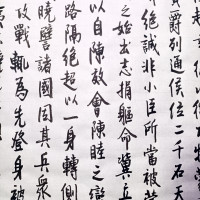 爵列通侯位二千石天
絕誠非小臣所當被
之始出志捐軀命冀立
以自陳效會陳睦之變
路隔絕超以一身轉側
曉譬諸國因其兵眾
攻戰輒為先登身被